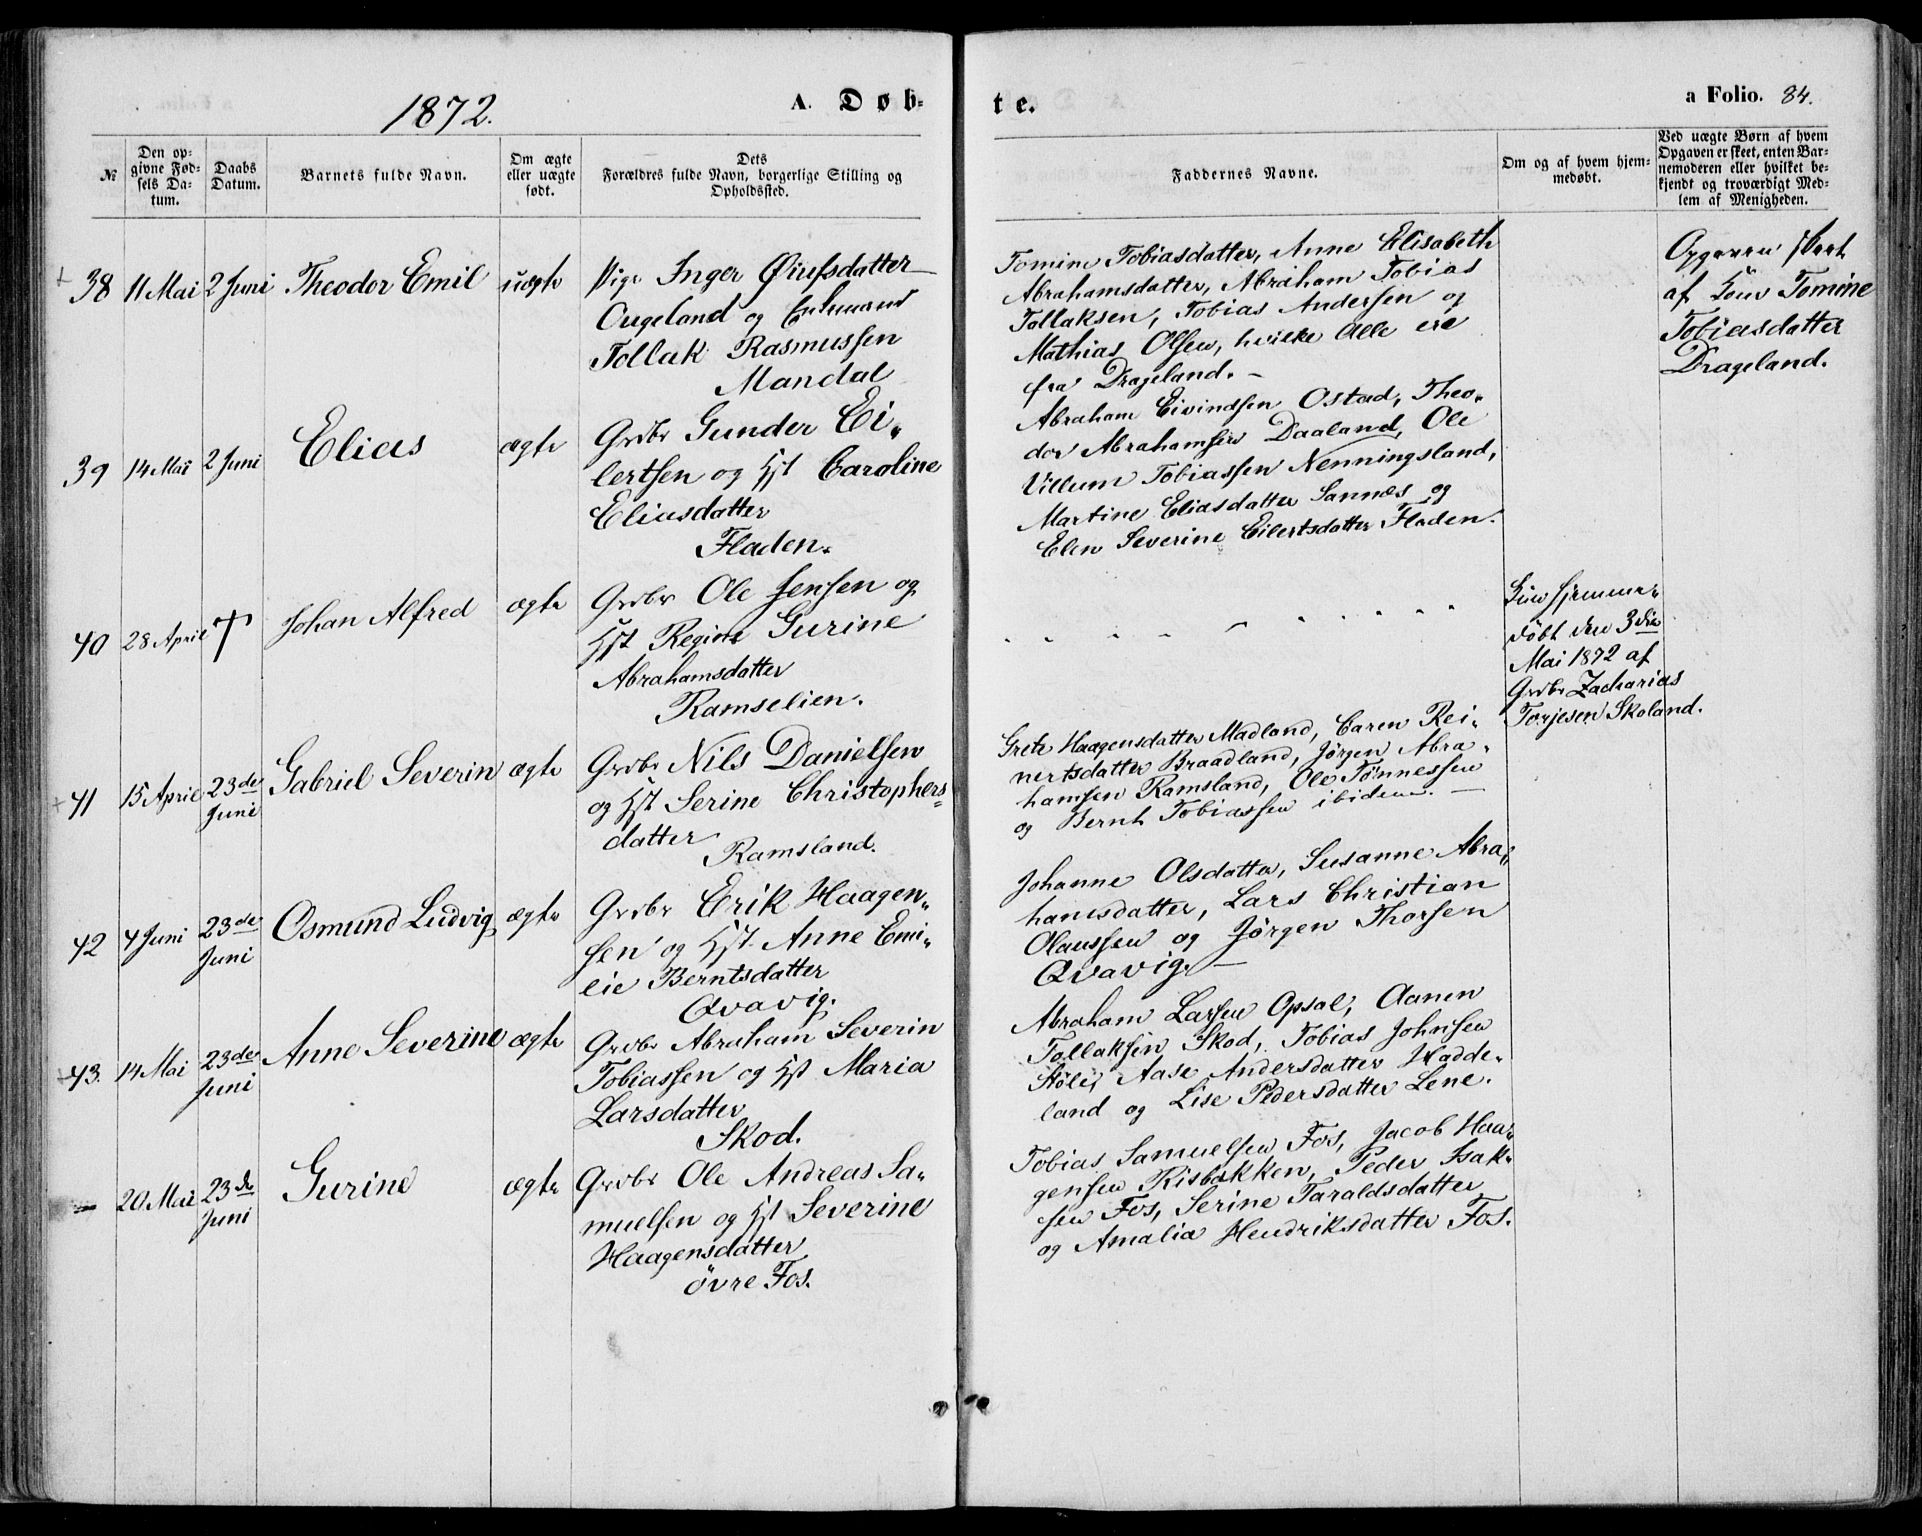 1872.
A. Døb-
te.
a Folio. 84.
№
Den op-
givne Fød-
sels Da-
tum.
Daabs
Datum.
Barnets fulde Navn.
Om ægte
eller uægte
født.
Dets
Forældres fulde Navn, borgerlige Stilling og
Opholdssted.
Faddernes Navne.
Om og af hvem hjem-
medøbt.
Ved uægte Børn af hvem
Opgaven er skeet, enten Bar-
nemoderen eller hvilket be-
kjendt og troværdigt Med-
lem af Menigheden.
+ 38 11 Mai 2 Juni Theodor Emil uægte
Pige Inger
og
Tollak Rasmussen
Mandal
Tomine Tobiasdatter, Anne Elisabeth
Abrahamsdatter, Abraham Tobias
Tollaksen, Tobias Andersen og
Mathias Olsen, hvilke Alle ere
fra Drageland. -
Opgaven skeet
af Tomine
Tobiasdatter
Drageland.
39 14 Mai 2 Juni Elias ægte
Grdbr Gunder Ei-
lertsen og Hst Caroline
Eliasdatter
Fladen.
Abraham Eivindsen Ostad, Theo-
dor Abrahamsen Daaland, Ole
Villum Tobiassen Nenningsland,
Martine Eliasdatter Sannes og
Elen Severine Eilertsdatter Fladen.
40 28 April † Johan Alfred ægte
Grdbr Ole Jensen og
Hst Regine Gurine
Abrahamsdatter
Ramselien.
Kun hjemme-
döbt den 3die
Mai 1872 af
Grdbr Zacharias
Torjesen Skoland.
+ 41 15 April 23de Juni Gabriel Severin ægte
Grdbr Nils Danielsen
og Hst Serine Christophers-
datter
Ramsland.
Grete Haagensdatter Madland, Caren Rei-
nertsdatter Braadland, Jørgen Abra-
hamsen Ramsland, Ole Tønnessen
og Bernt Tobiassen ibidem. -
42 4 Juni 23de Juni Osmund Ludvig ægte
Grdbr Erik Haagen-
sen og Hst. Anne Emi-
lie Berntsdatter
Qvavig.
Johanne Olsdatter, Susanne Abra-
hamsdatter, Lars Christian
Olaussen og Jørgen Thorsen
Qvavig. -
+ 43. 14 Mai 23de Juni Anne Severine ægte
Grdbr Abraham Severin
Tobiassen og Hst Maria
Larsdatter
Skod.
Abraham Larsen Opsal, Aanen
Tollaksen Skod, Tobias Johnsen
Stöle, Aase Andersdatter Hadde-
land og Lise Pedersdatter Lene.
- 20 Mai 23de Juni Gurine ægte
Grdbr Ole Andreas Sa-
muelsen og Hst Severine
Haagensdatter
övre Fos.
Tobias Samuelsen Fos, Jacob Haa-
gensen Risbakken, Peder Isak-
sen Fos, Serine Taraldsdatter
og Amalia Hendriksdatter Fos.